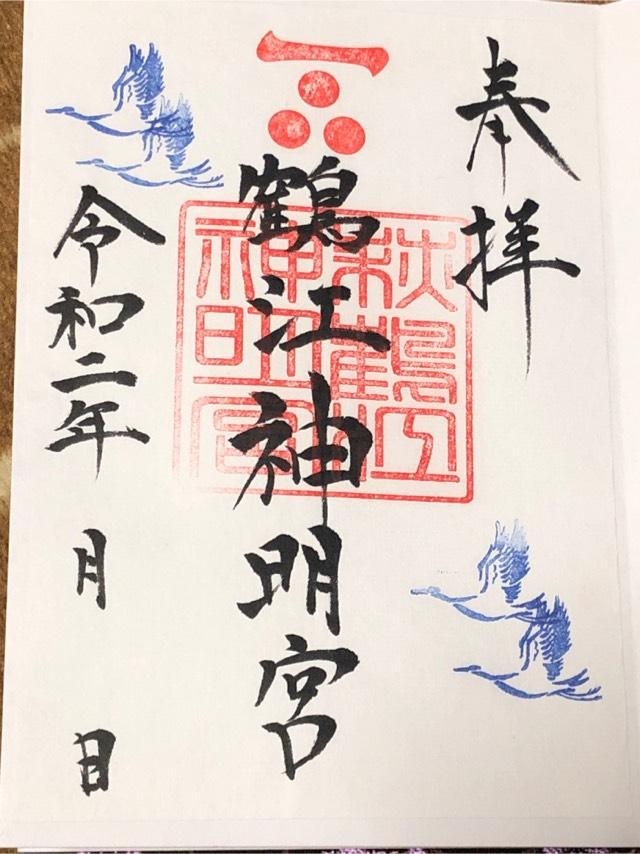 奉拝
鶴江神明宮
萩鶴江
神明宮
令和二年 月 日